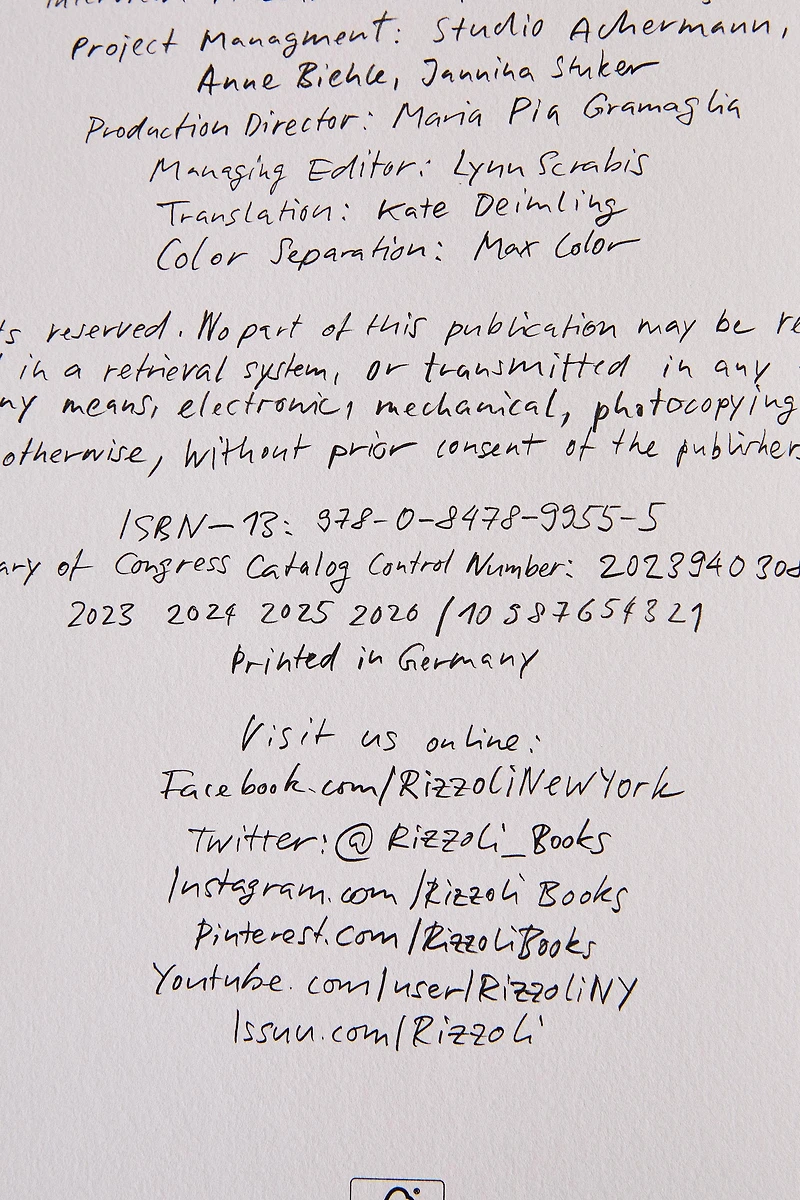 Project Managment: Studio Achermann,
Anne Biehle, Jannina Stuker
Production Director: Maria Pia Gramaglia
Managing Editor: Lynn Scrabis
Translation: Kate Deimling
Color Separation: Max Color
reserved. No part of this publication may be
in a retrieval system, or transmitted in any
means, electronic, mechanical, photocopying
otherwise, without prior consent of the publishers
ISBN-13: 978-0-8478-9955-5
of Congress Catalog Control Number: 2023940308
2023 2024 2025 2026 / 10 9 8 7 6 5 4 3 2 1
Printed in Germany
Visit us online:
Facebook.com/RizzoliNewYork
Twitter: @Rizzoli_Books
Instagram.com/Rizzoli Books
Pinterest.com/RizzoliBooks
Youtube.com/user/RizzoliNY
Issuu.com/Rizzoli